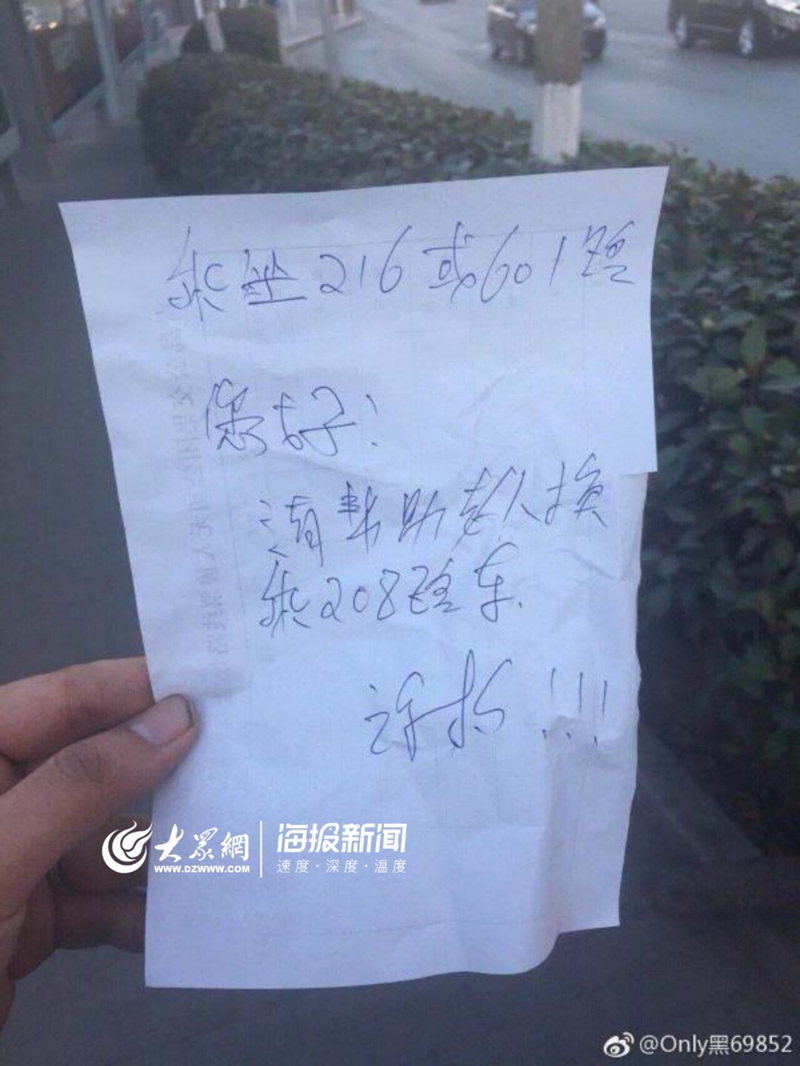 乘坐216或601路
您好!
请帮助老人换
乘208路车.
谢谢!!!
大众網
WWW.DZWWW.COM
海报新闻
速度·深度·温度
@Only黑69852